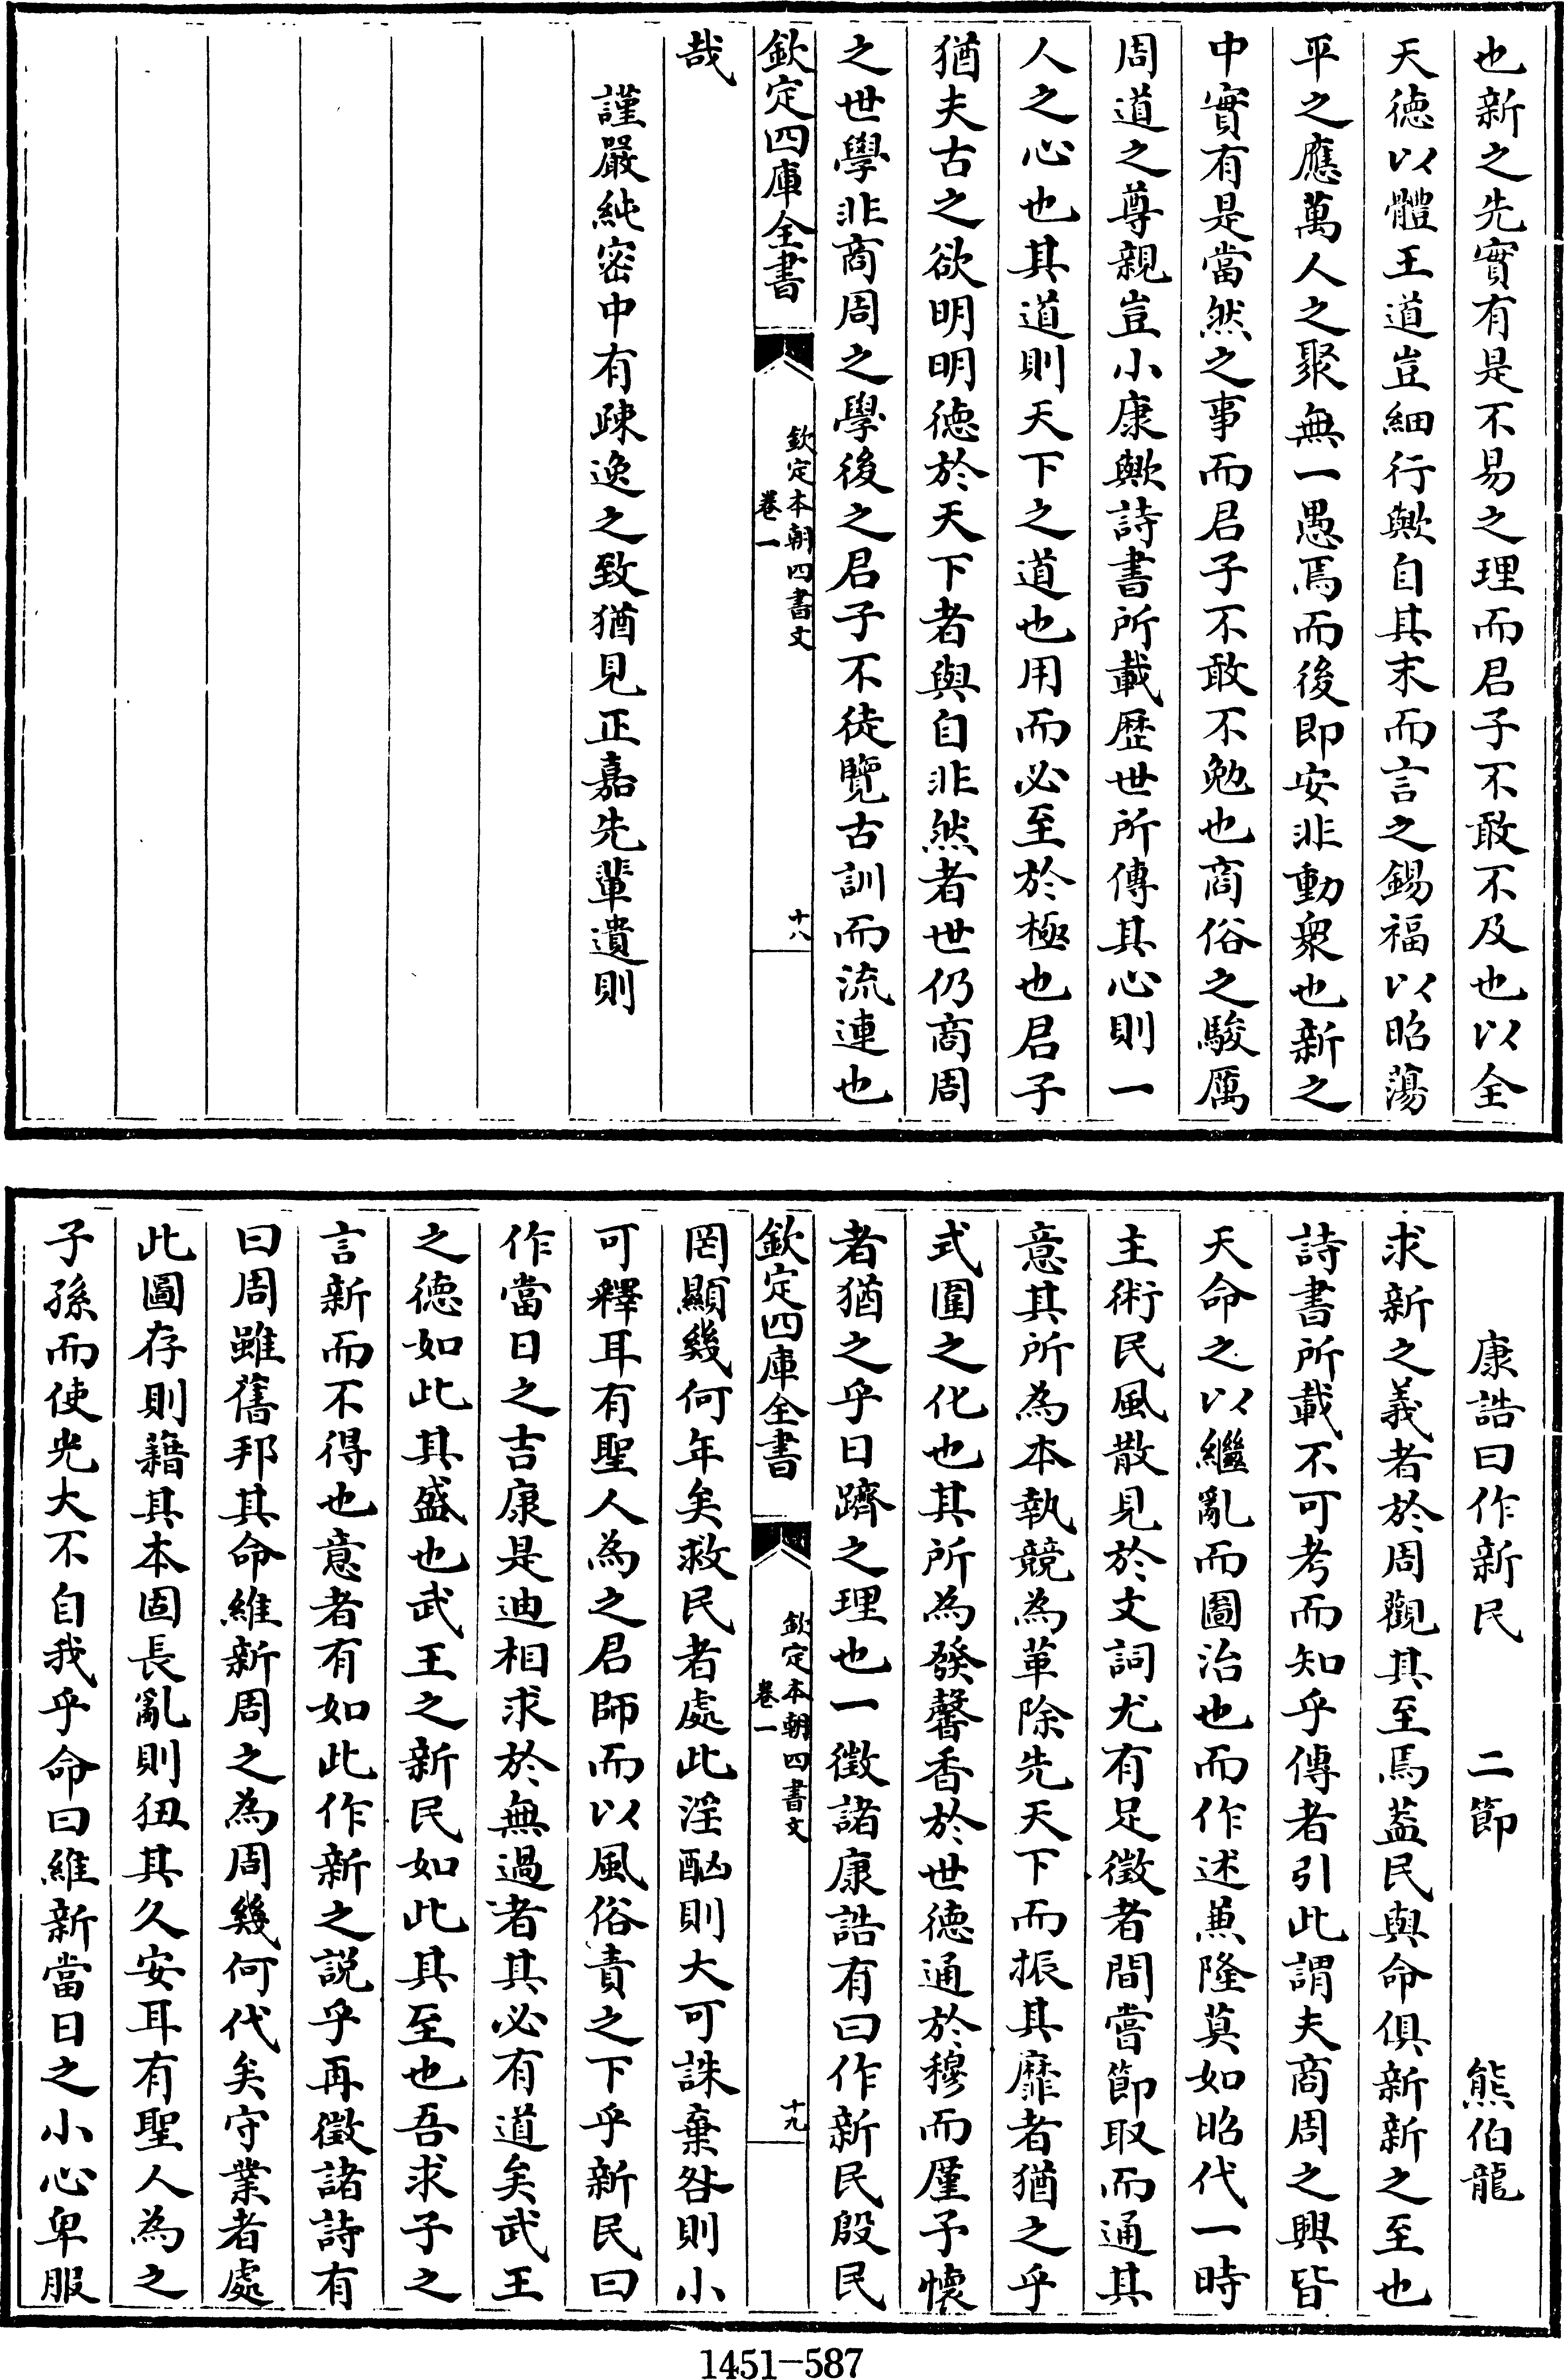 也新之先實有是不易之理而君子不敢不及也以全
天德以體王道豈細行歟自其末而言之錫福以昭蕩
平之應萬人之聚無一愚焉而後即安非動衆也新之
中實有是當然之事而君子不敢不勉也商俗之駿厲
周道之尊親豈小康歟詩書所載歴世所傳其心則一
人之心也其道則天下之道也用而必至於極也君子
猶夫古之欲明明德於天下者與自非然者世仍商周
之世學非商周之學後之君子不徒覽古訓而流連也
欽定四庫全書
欽定本朝四書文
卷一
十八
哉
謹嚴純密中有疎逸之致猶見正嘉先輩遺則
康誥曰作新民 二節 熊伯龍
求新之義者於周觀其至焉蓋民與命俱新新之至也
詩書所載不可考而知乎傳者引此謂夫商周之興皆
天命之以繼亂而圖治也而作述兼隆莫如昭代一時
主術民風散見於文詞尤有足徵者間嘗節取而通其
意其所為本執競為革除先天下而振其靡者猶之乎
式圍之化也其所為發馨香於世德通於穆而厪予懷
者猶之乎日躋之理也一徵諸康誥有曰作新民殷民
欽定四庫全書
欽定本朝四書文
卷一
十九
罔顯幾何年矣救民者處此淫酗則大可誅棄咎則小
可釋耳有聖人為之君師而以風俗責之下乎新民曰
作當日之吉康是迪相求於無過者其必有道矣武王
之德如此其盛也武王之新民如此其至也吾求子之
言新而不得也意者有如此作新之説乎再徵諸詩有
曰周雖舊邦其命維新周之為周幾何代矣守業者處
此圖存則藉其本固長亂則狃其久安耳有聖人為之
子孫而使光大不自我乎命曰維新當日之小心卑服
1451-587